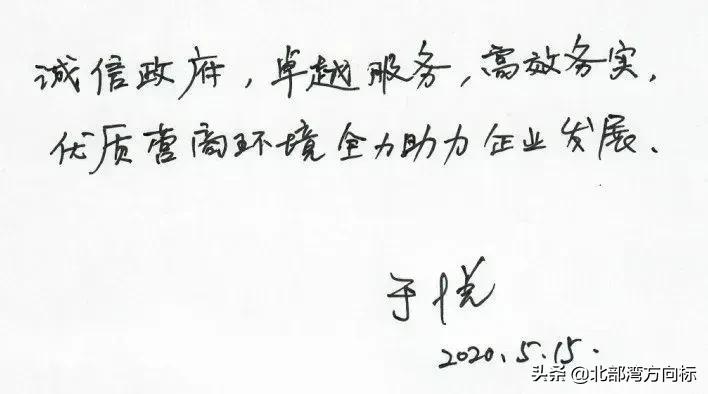 诚信政府,卓越服务,高效务实,
优质营商环境全力助力企业发展.
于悦
2020.5.15.
头条 @北部湾方向标